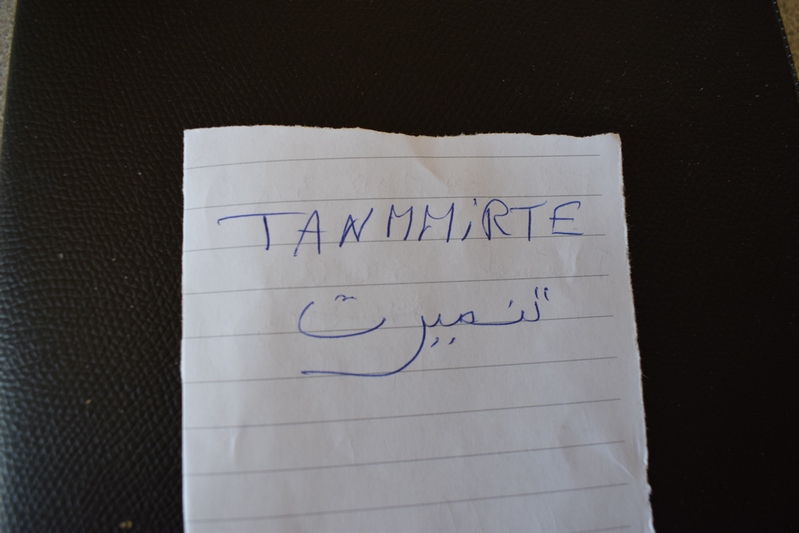 TANMMiRTE
تنميرت